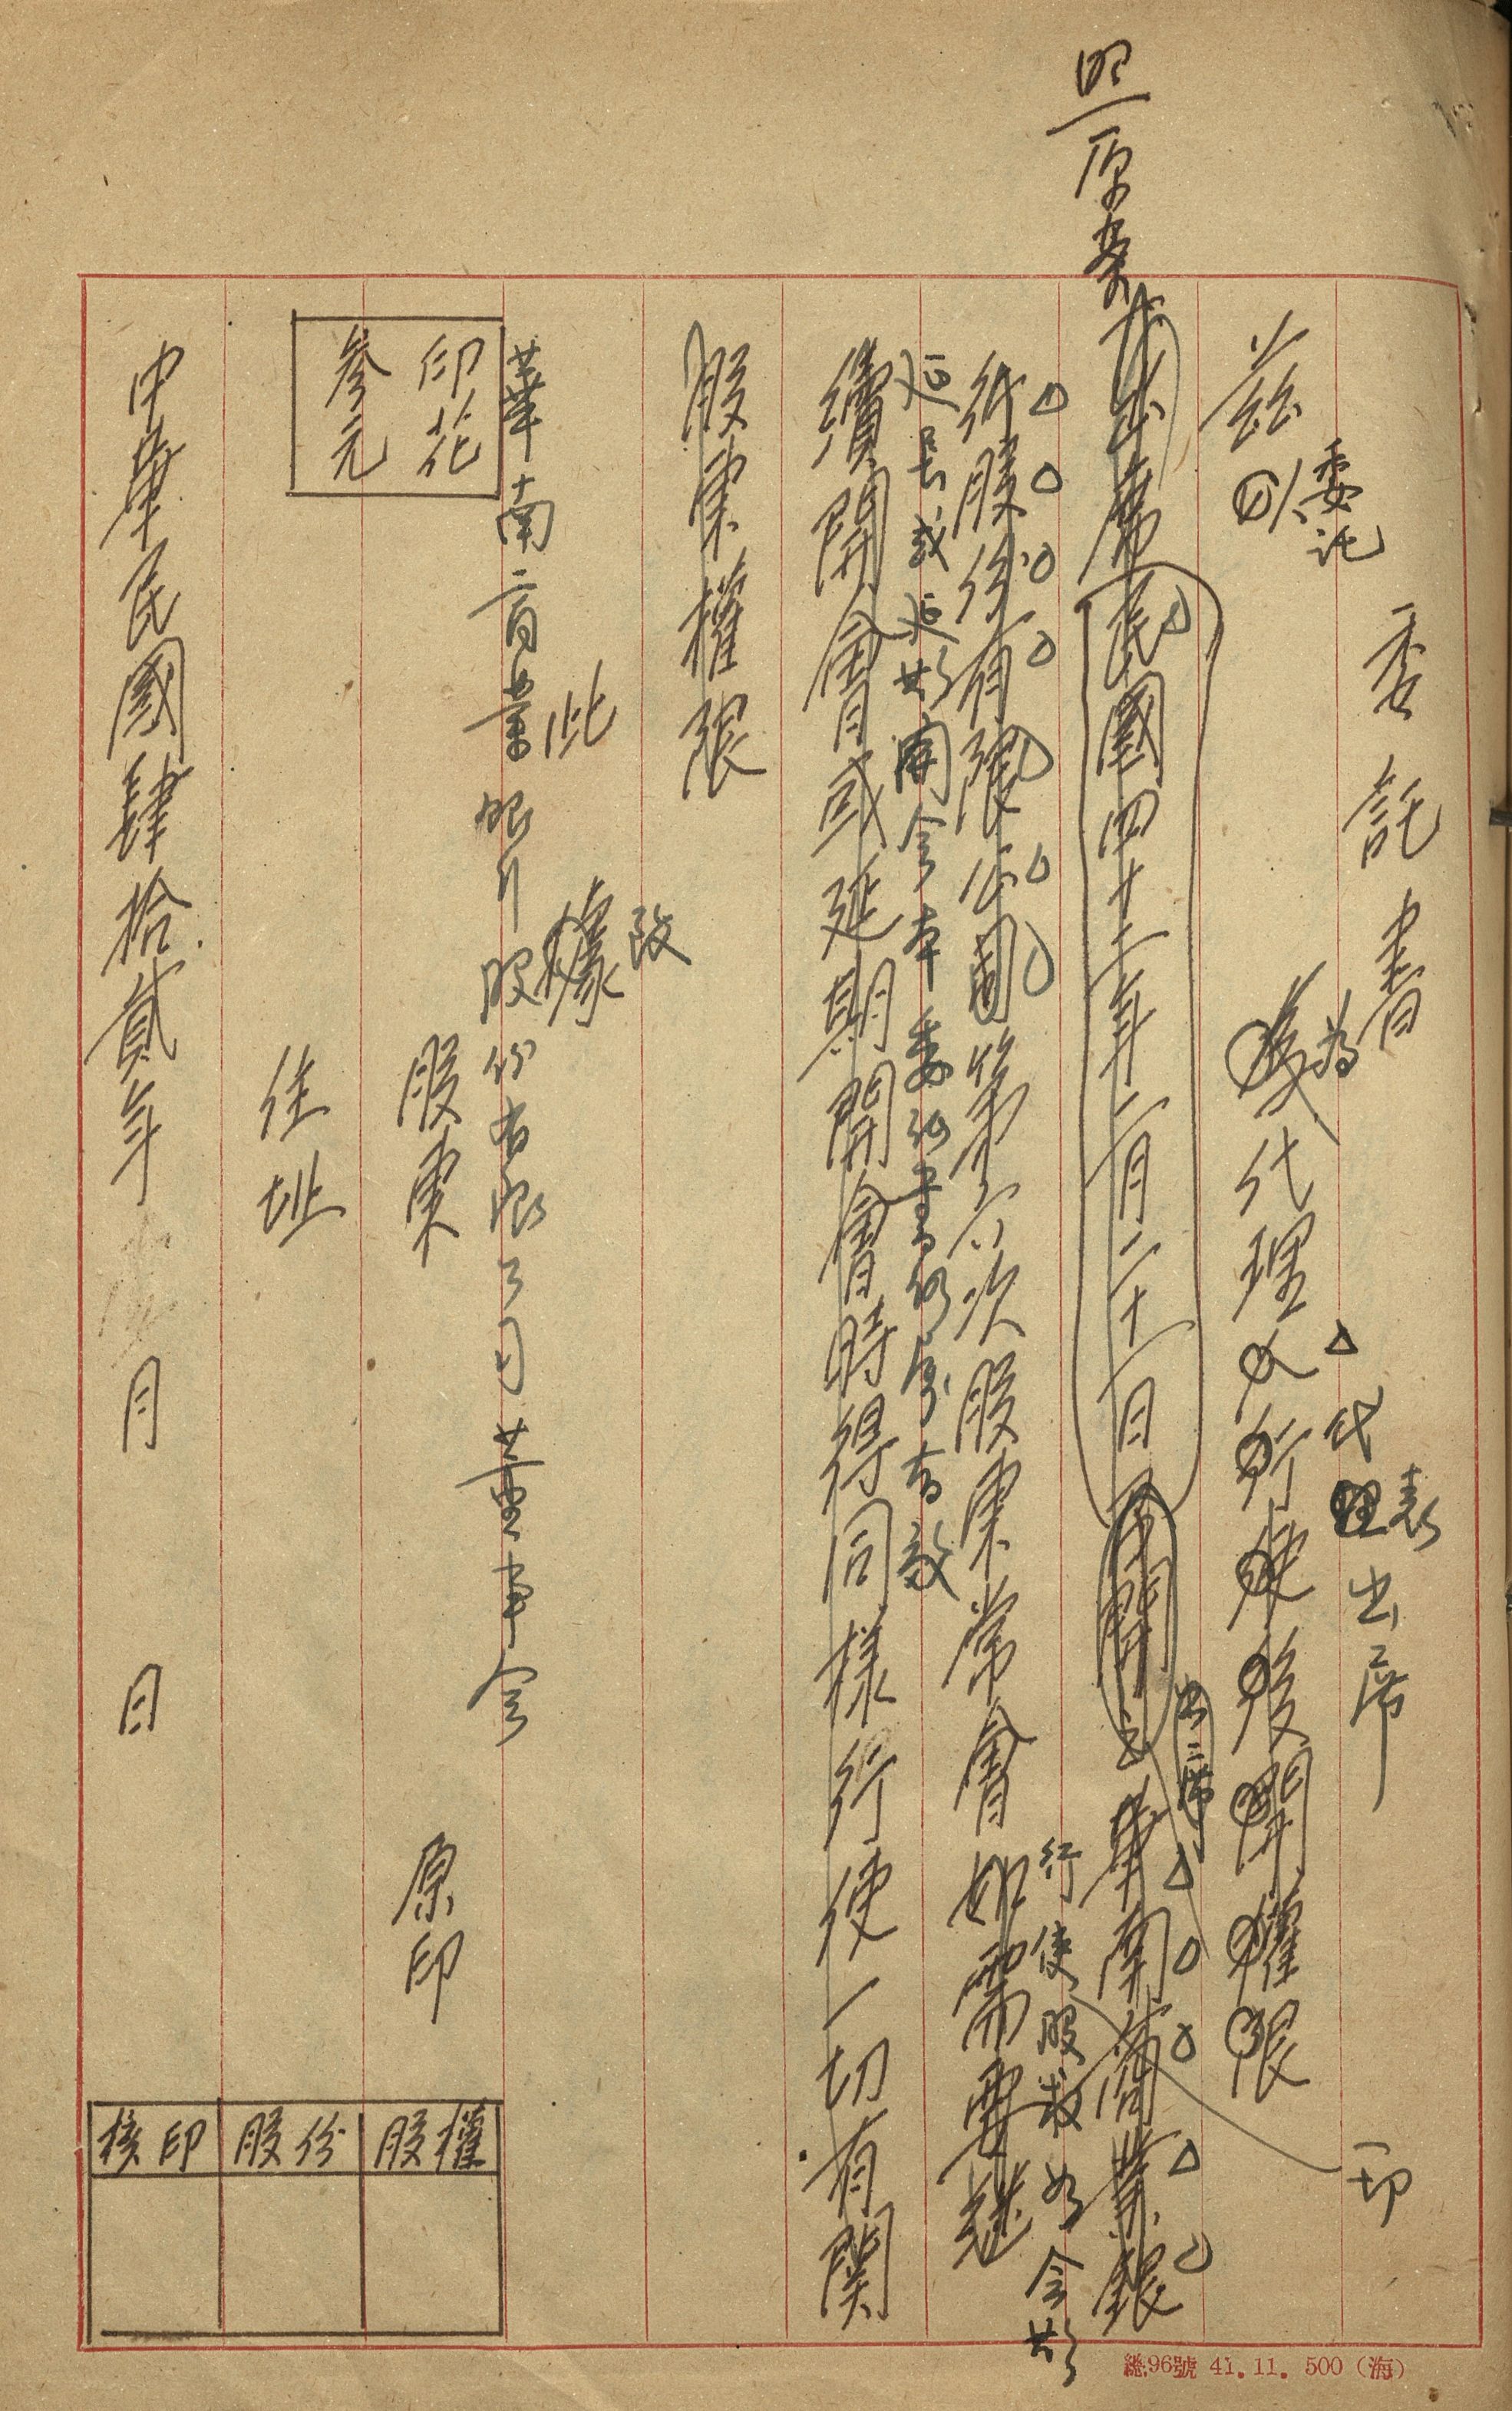 照原案
委託書
委託
茲以
為
代理人行使股開權限
代表出席
印
出席民國四十二年二月二十一日召開之華南商業銀
出席
行股份有限公司第六次股東常會如需要繼
行使股權如會期
延長或延期開會本委託書仍屬有效
續開會或延期開會時得同樣行使一切有關
股東權限
此
致
據
華南商業銀行股份有限公司董事會
印花
參元
股東
原印
住址
中華民國肆拾貳年 月 日
股權
股份
核印
總96號 41.11. 500（海）